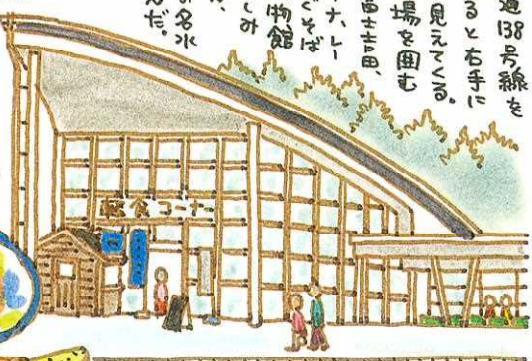 道138号線を
ると右手に
見えてくる。
場を囲む
富士吉田、
ナ、レー
ぐそば
物館
しみ
の名水
んだ。
軽食コーナー